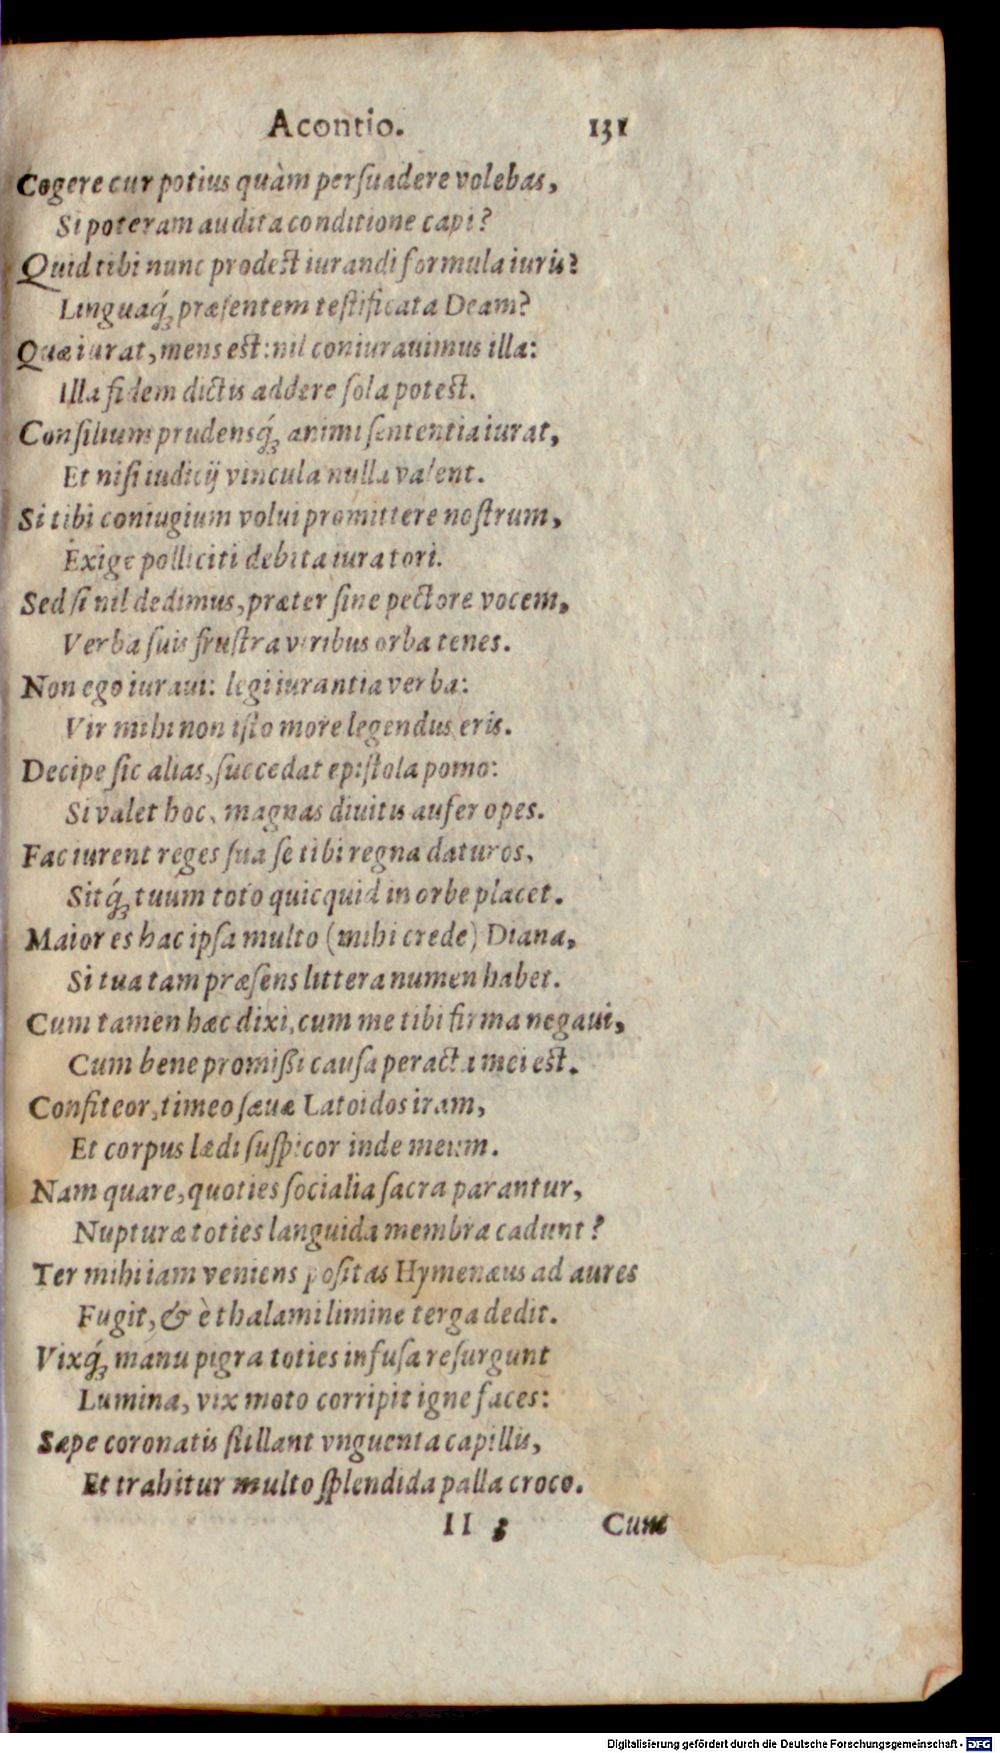 Acontio. 131
Cogere cur potius quàm perſuadere volebas,
Si poteram audita conditione capi?
Quid tibi nunc prodest iurandi formula iuris?
Linguaq́; præſentem teſtificata Deam?
Quæ iurat, mens est: nil coniurauimus illa:
Illa fidem dictis addere ſola potest.
Conſilium prudensq́; animi ſententia iurat,
Et niſi iudicij vincula nulla valent.
Si tibi coniugium volui promittere noſtrum,
Exige polliciti debita iura tori.
Sed ſi nil dedimus, præter ſine pectore vocem,
Verba ſuis fruſtra viribus orba tenes.
Non ego iuraui: legi iurantia verba:
Vir mihi non iſto more legendus eris.
Decipe ſic alias, ſuccedat epiſtola pomo:
Si valet hoc, magnas diuitis aufer opes.
Fac iurent reges ſua ſe tibi regna daturos,
Sitq́; tuum toto quicquid in orbe placet.
Maior es hac ipſa multo (mihi crede) Diana,
Si tua tam præſens littera numen habet.
Cum tamen hæc dixi, cum me tibi firma negaui,
Cum bene promißi cauſa peracta mei est.
Confiteor, timeo ſæuæ Latoidos iram,
Et corpus lædi ſuſpicor inde meum.
Nam quare, quoties ſocialia ſacra parantur,
Nupturæ toties languida membra cadunt?
Ter mihi iam veniens poſitas Hymenæus ad aures
Fugit, & è thalami limine terga dedit.
Vixq́; manu pigra toties infuſa reſurgunt
Lumina, vix moto corripit igne faces:
Sæpe coronatis ſtillant vnguenta capillis,
Et trahitur multo ſplendida palla croco.
II Cum
Digitalisierung gefördert durch die Deutsche Forschungsgemeinschaft - DFG